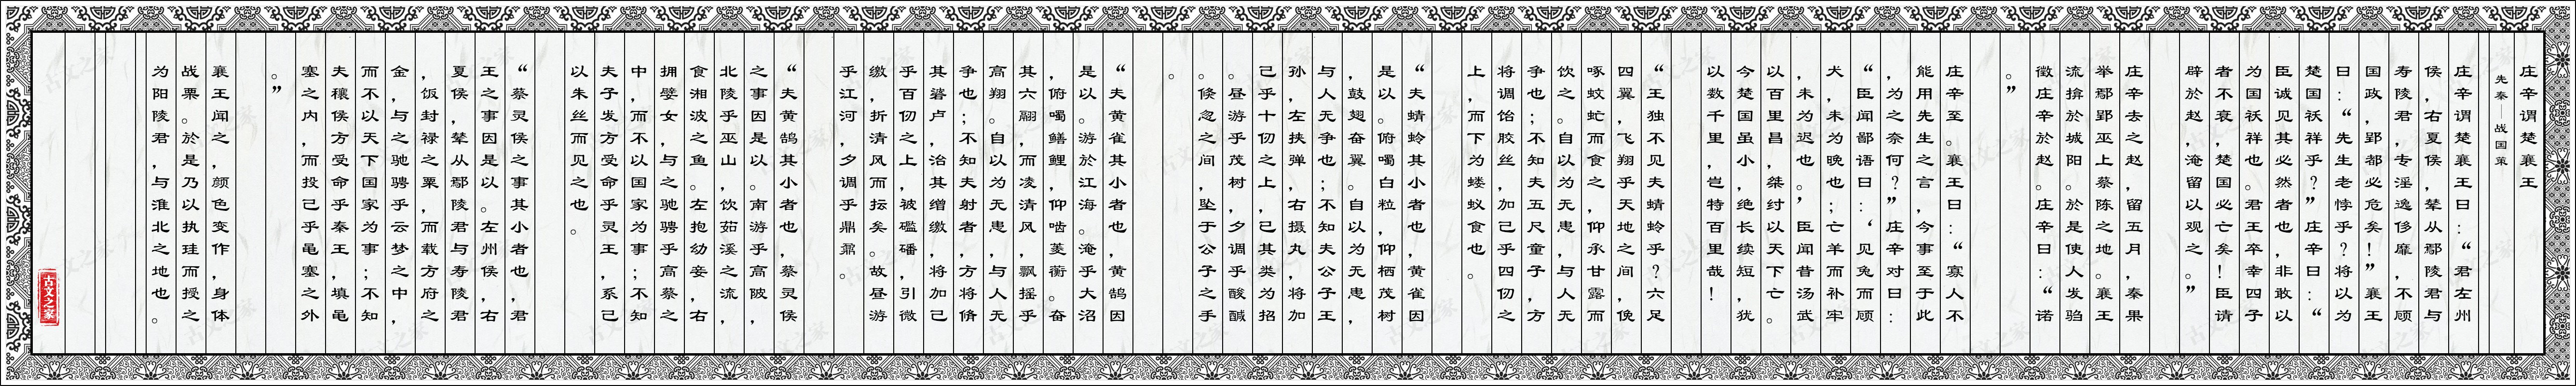 庄辛谓楚襄王
先秦—战国策
庄辛谓楚襄王曰：“君左州
侯，右夏侯，辇从鄢陵君与
寿陵君，专淫逸侈靡，不顾
国政，郢都必危矣！”襄王
曰：“先生老悖乎？将以为
楚国祅祥乎？”庄辛曰：“
臣诚见其必然者也，非敢以
为国祅祥也。君王卒幸四子
者不衰，楚国必亡矣！臣请
辟於赵，淹留以观之。”
庄辛去之赵，留五月，秦果
举鄢郢巫上蔡陈之地。襄王
流揜於城阳。於是使人发驺
徵庄辛於赵。庄辛曰：“诺
。”
庄辛至。襄王曰：“寡人不
能用先生之言，今事至于此
，为之奈何？”庄辛对曰：
“臣闻鄙语曰：‘见兔而顾
犬，未为晚也；亡羊而补牢
，未为迟也。’臣闻昔汤武
以百里昌，桀纣以天下亡。
今楚国虽小，绝长续短，犹
以数千里，岂特百里哉！
“王独不见夫蜻蛉乎？六足
四翼，飞翔乎天地之间，俛
啄蚊虻而食之，仰承甘露而
饮之。自以为无患，与人无
争也；不知夫五尺童子，方
将调饴胶丝，加己乎四仞之
上，而下为蝼蚁食也。
“夫蜻蛉其小者也，黄雀因
是以。俯噣白粒，仰栖茂树
，鼓翅奋翼。自以为无患，
与人无争也；不知夫公子王
孙，左挟弹，右摄丸，将加
己乎十仞之上，已其类为招
。昼游乎茂树，夕调乎酸醎
。倏忽之间，坠于公子之手
。
“夫黄雀其小者也，黄鹄因
是以。游於江海。淹乎大沼
，俯噣鳝鲤，仰啮菱衡。奋
其六翮，而凌清风，飘摇乎
高翔。自以为无患，与人无
争也；不知夫射者，方将脩
其碆卢，治其缯缴，将加己
乎百仞之上，被礛磻，引微
缴，折清风而抎矣。故昼游
乎江河，夕调乎鼎鼐。
“夫黄鹄其小者也，蔡灵侯
之事因是以。南游乎高陂，
北陵乎巫山，饮茹溪之流，
食湘波之鱼。左抱幼妾，右
拥嬖女，与之驰骋乎高蔡之
中，而不以国家为事；不知
夫子发方受命乎灵王，系己
以朱丝而见之也。
“蔡灵侯之事其小者也，君
王之事因是以。左州侯，右
夏侯，辇从鄢陵君与寿陵君
，饭封禄之粟，而载方府之
金，与之驰骋乎云梦之中，
而不以天下国家为事；不知
夫穰侯方受命乎秦王，填黾
塞之内，而投己乎黾塞之外
。”
襄王闻之，颜色变作，身体
战栗。於是乃以执珪而授之
为阳陵君，与淮北之地也。
古文之家